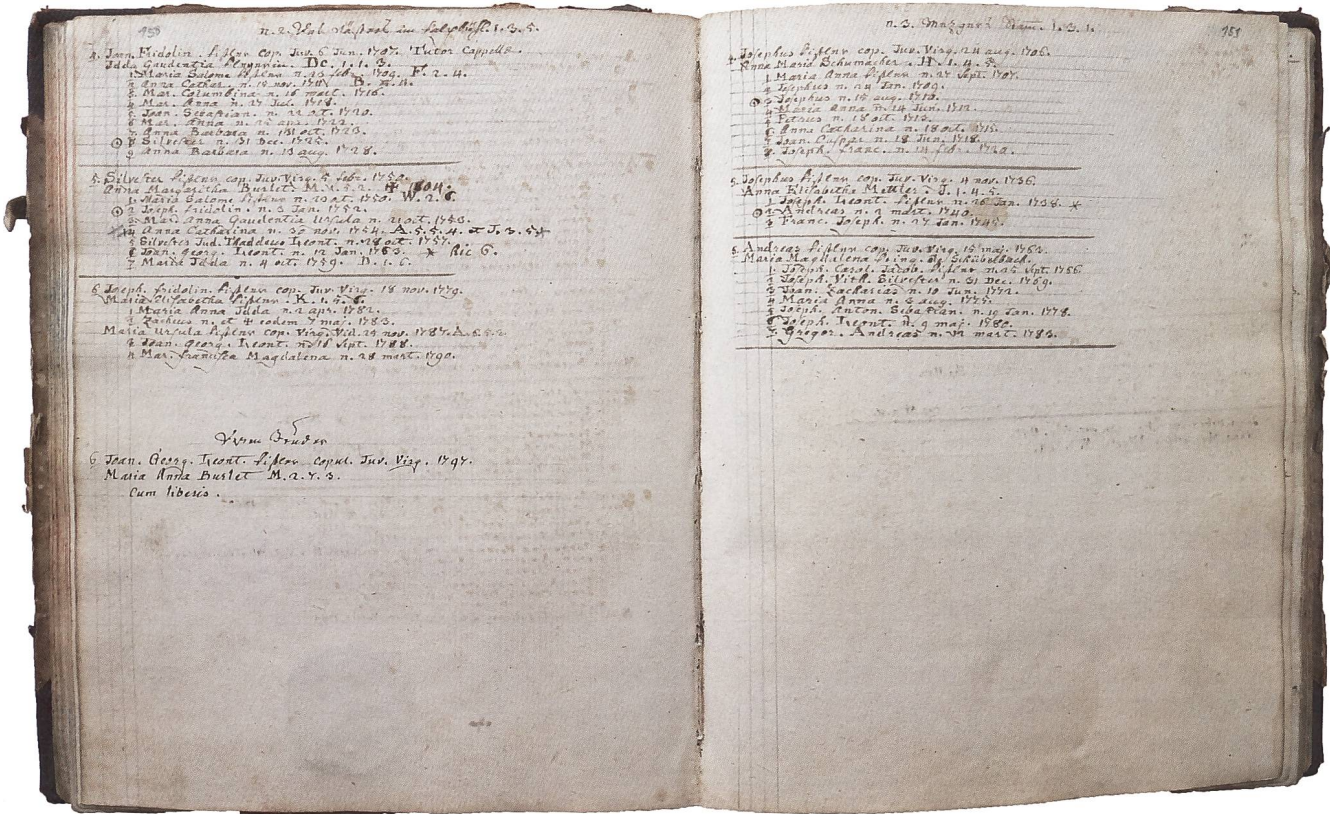 150
n. 2. 1. 3. 5.
4. Joan. Fridolin. cop. Juv. 6 Jun. 1707. Tutor Cappellæ
Idda Gaudentia Dc. 1. 1. 3.
1 Maria Salome n. 13 febr. 1709. F. 2. 4.
2 Anna Cathar. n. 18 nov.
3 Mar. Columbina n. 16 mart. 1716.
4 Mar. Anna n. 27 Jul. 1718.
5 Joan. Sebastian. n. 22 oct. 1720.
6 Mar. Anna n. 22 apr. 1722.
7 Anna Barbara n. 131 oct. 1723.
8 Silvester n. 31 Dec. 1725.
9 Anna Barbara n. 13 aug. 1728.
5. Silvester cop. Juv. Virg. 5 febr. 1750.
Anna Margaritha Burlet M. 1. 5. 2. ✝ 1804.
1 Maria Salome n. 20 oct. 1750. W. 2. 6.
2 Joseph. fridolin. n. 3 Jan. 1752.
3 Mar. Anna Gaudentia Ursula n. 21 oct. 1753.
4 Anna Catharina n. 30 nov. 1754. A. 5. 5. 4. et J. 3. 5.
5 Silvester Jud. Thaddeus Leont. n. 28 oct. 1757.
6 Joan. Georg. Leont. n. 12 Jan. 1763. * Hic 6.
7 Maria Idda n. 4 oct. 1759. D. 1. 6.
6 Joseph. fridolin. cop. Juv. Virg. 18 nov. 1779.
Maria Elisabetha K. 1. 5. 6.
1 Maria Anna Idda n. 2 apr. 1782.
2 Zacheus n. et ✝ eodem 7 maj. 1783.
Maria Ursula cop. Virg. Vid. 24 nov. 1787. A. 6. 5. 2
3 Joan. Georg. Leont. n. 16 Sept. 1788.
4 Mar. francisca Magdalena n. 28 mart. 1790.
6 Joan. Georg. Leont. copul. Juv. Virg. 1797.
Maria Anna Burlet M. 2. 7. 3.
cum liberis.
151
n. 3. 1. 3. 1.
4. Josephus cop. Juv. Virg. 24 aug. 1706.
Anna Maria Schumacher. H. 1. 4. 5.
1 Maria Anna n. 27 Sept. 1707.
2 Josephus n. 24 Jan. 1709.
3 Josephus n. 15 aug. 1710.
4 Maria Anna n. 14 Jun. 1712.
5 Petrus n. 18 oct. 1713.
6 Anna Catharina n. 18 oct. 1715.
7 Joan. Caspar n. 18 Jun. 1718.
8 Joseph. franc. n. 14 febr. 1720.
5 Josephus cop. Juv. Virg. 4 nov. 1736.
Anna Elisabetha Mettler. J. 1. 4. 5.
1 Joseph. Leont. n. 26 Jan. 1738. *
2 Andreas n. 2 mart. 1740.
3 Franc. Joseph. n. 27 Jan. 1745.
6 Andreas cop. Juv. Virg. 15 maj. 1763.
Maria Magdalena Schübelbach.
1 Joseph. Carol. Jacob. n. 25 Sept. 1766.
2 Joseph. Silvester n. 31 Dec. 1769.
3 Joan. Zacharias n. 10 Jun. 1772.
4 Maria Anna n. 3 aug. 1775.
5 Joseph. Anton. Sebastian. n. 19 Jan. 1778.
6 Joseph. Leont. n. 9 maj. 1780.
7 Gregor. Andreas n. 12 mart. 1783.